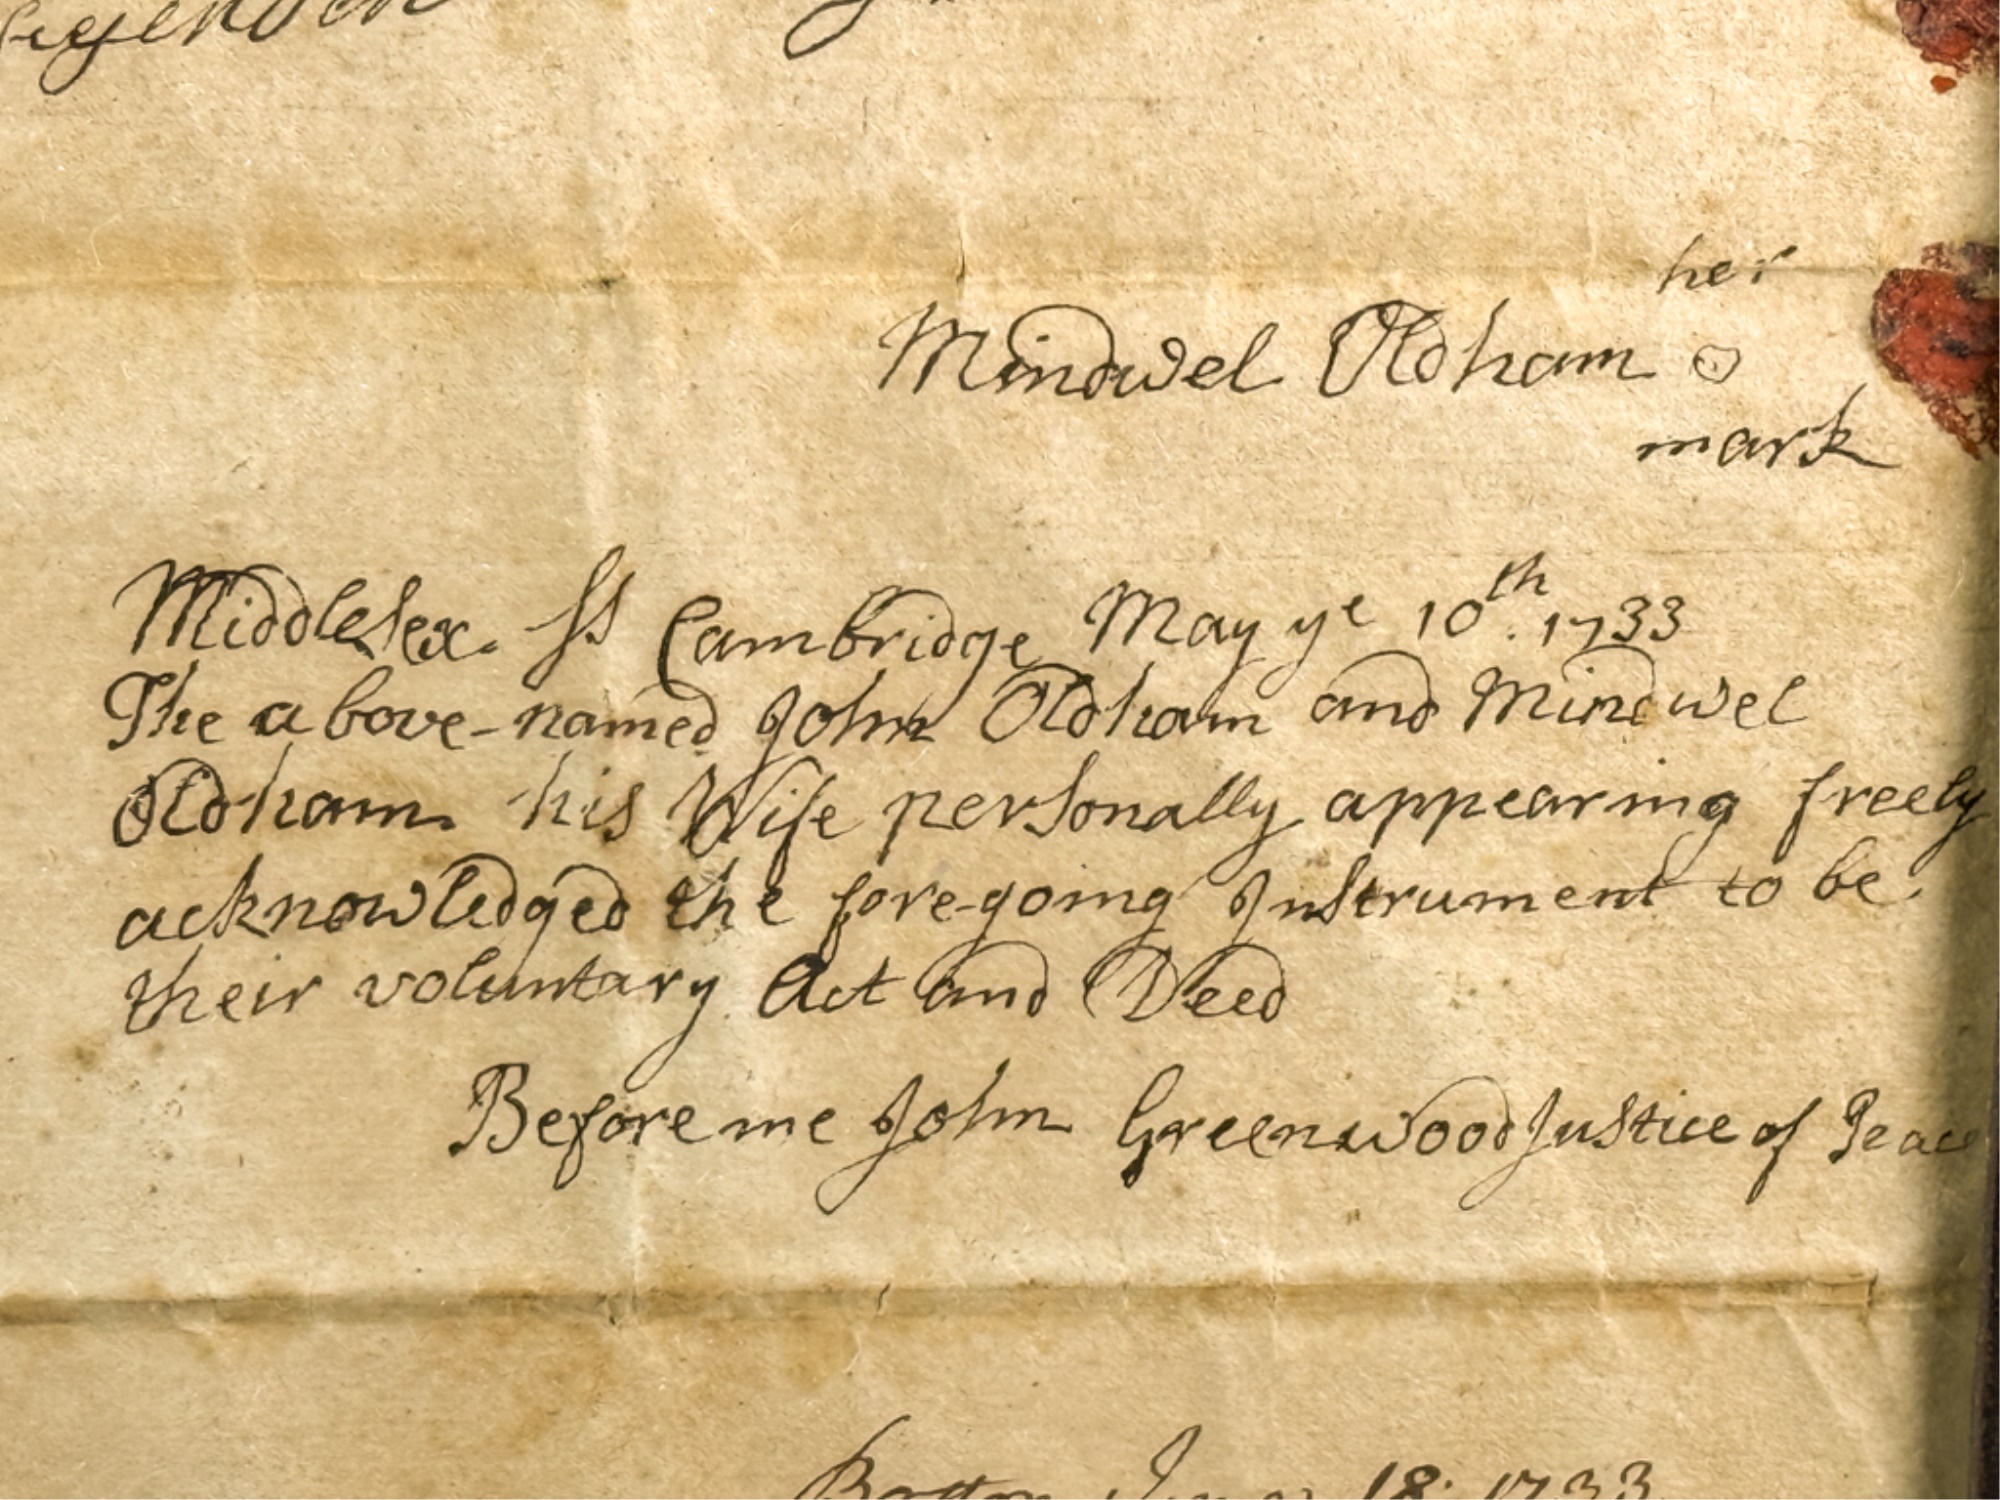 her
Mindwel Oldham
mark
Middlesex. ss Cambridge May ye 10th. 1733
The above-named John Oldham and Mindwel
Oldham his Wife personally appearing freely
acknowledged the fore-going Instrument to be
their voluntary Act and Deed
Before me John Greenwood Justice of Peace
18. 1733